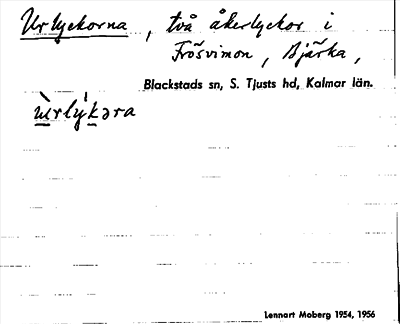 Urlyckorna, två åkerlyckor i
Frösvimon, Bjärka,
Blackstads sn, S. Tjusts hd, Kalmar län.
ùrlýkəra
Lennart Moberg 1954, 1956